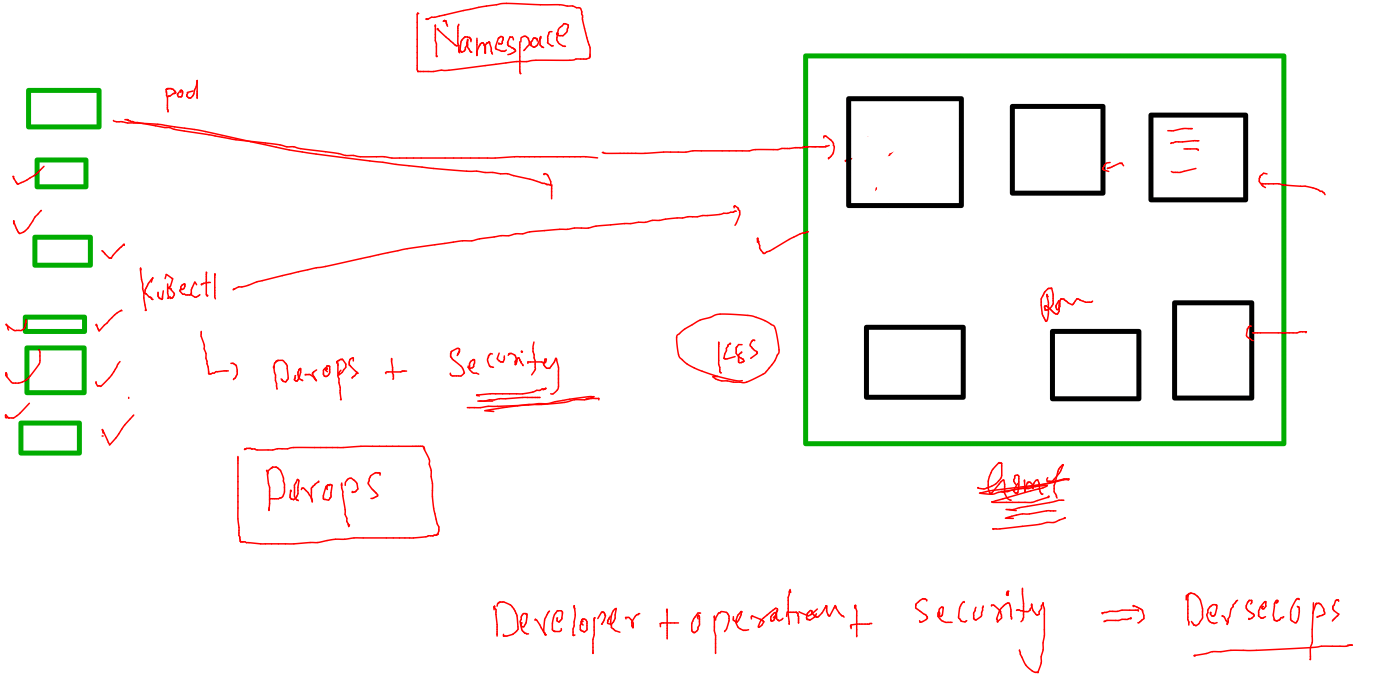 Namespace
pod
KuBectl
Devops + Security
K8S
Devops
Developer + operation + security ⇒ Devsecops